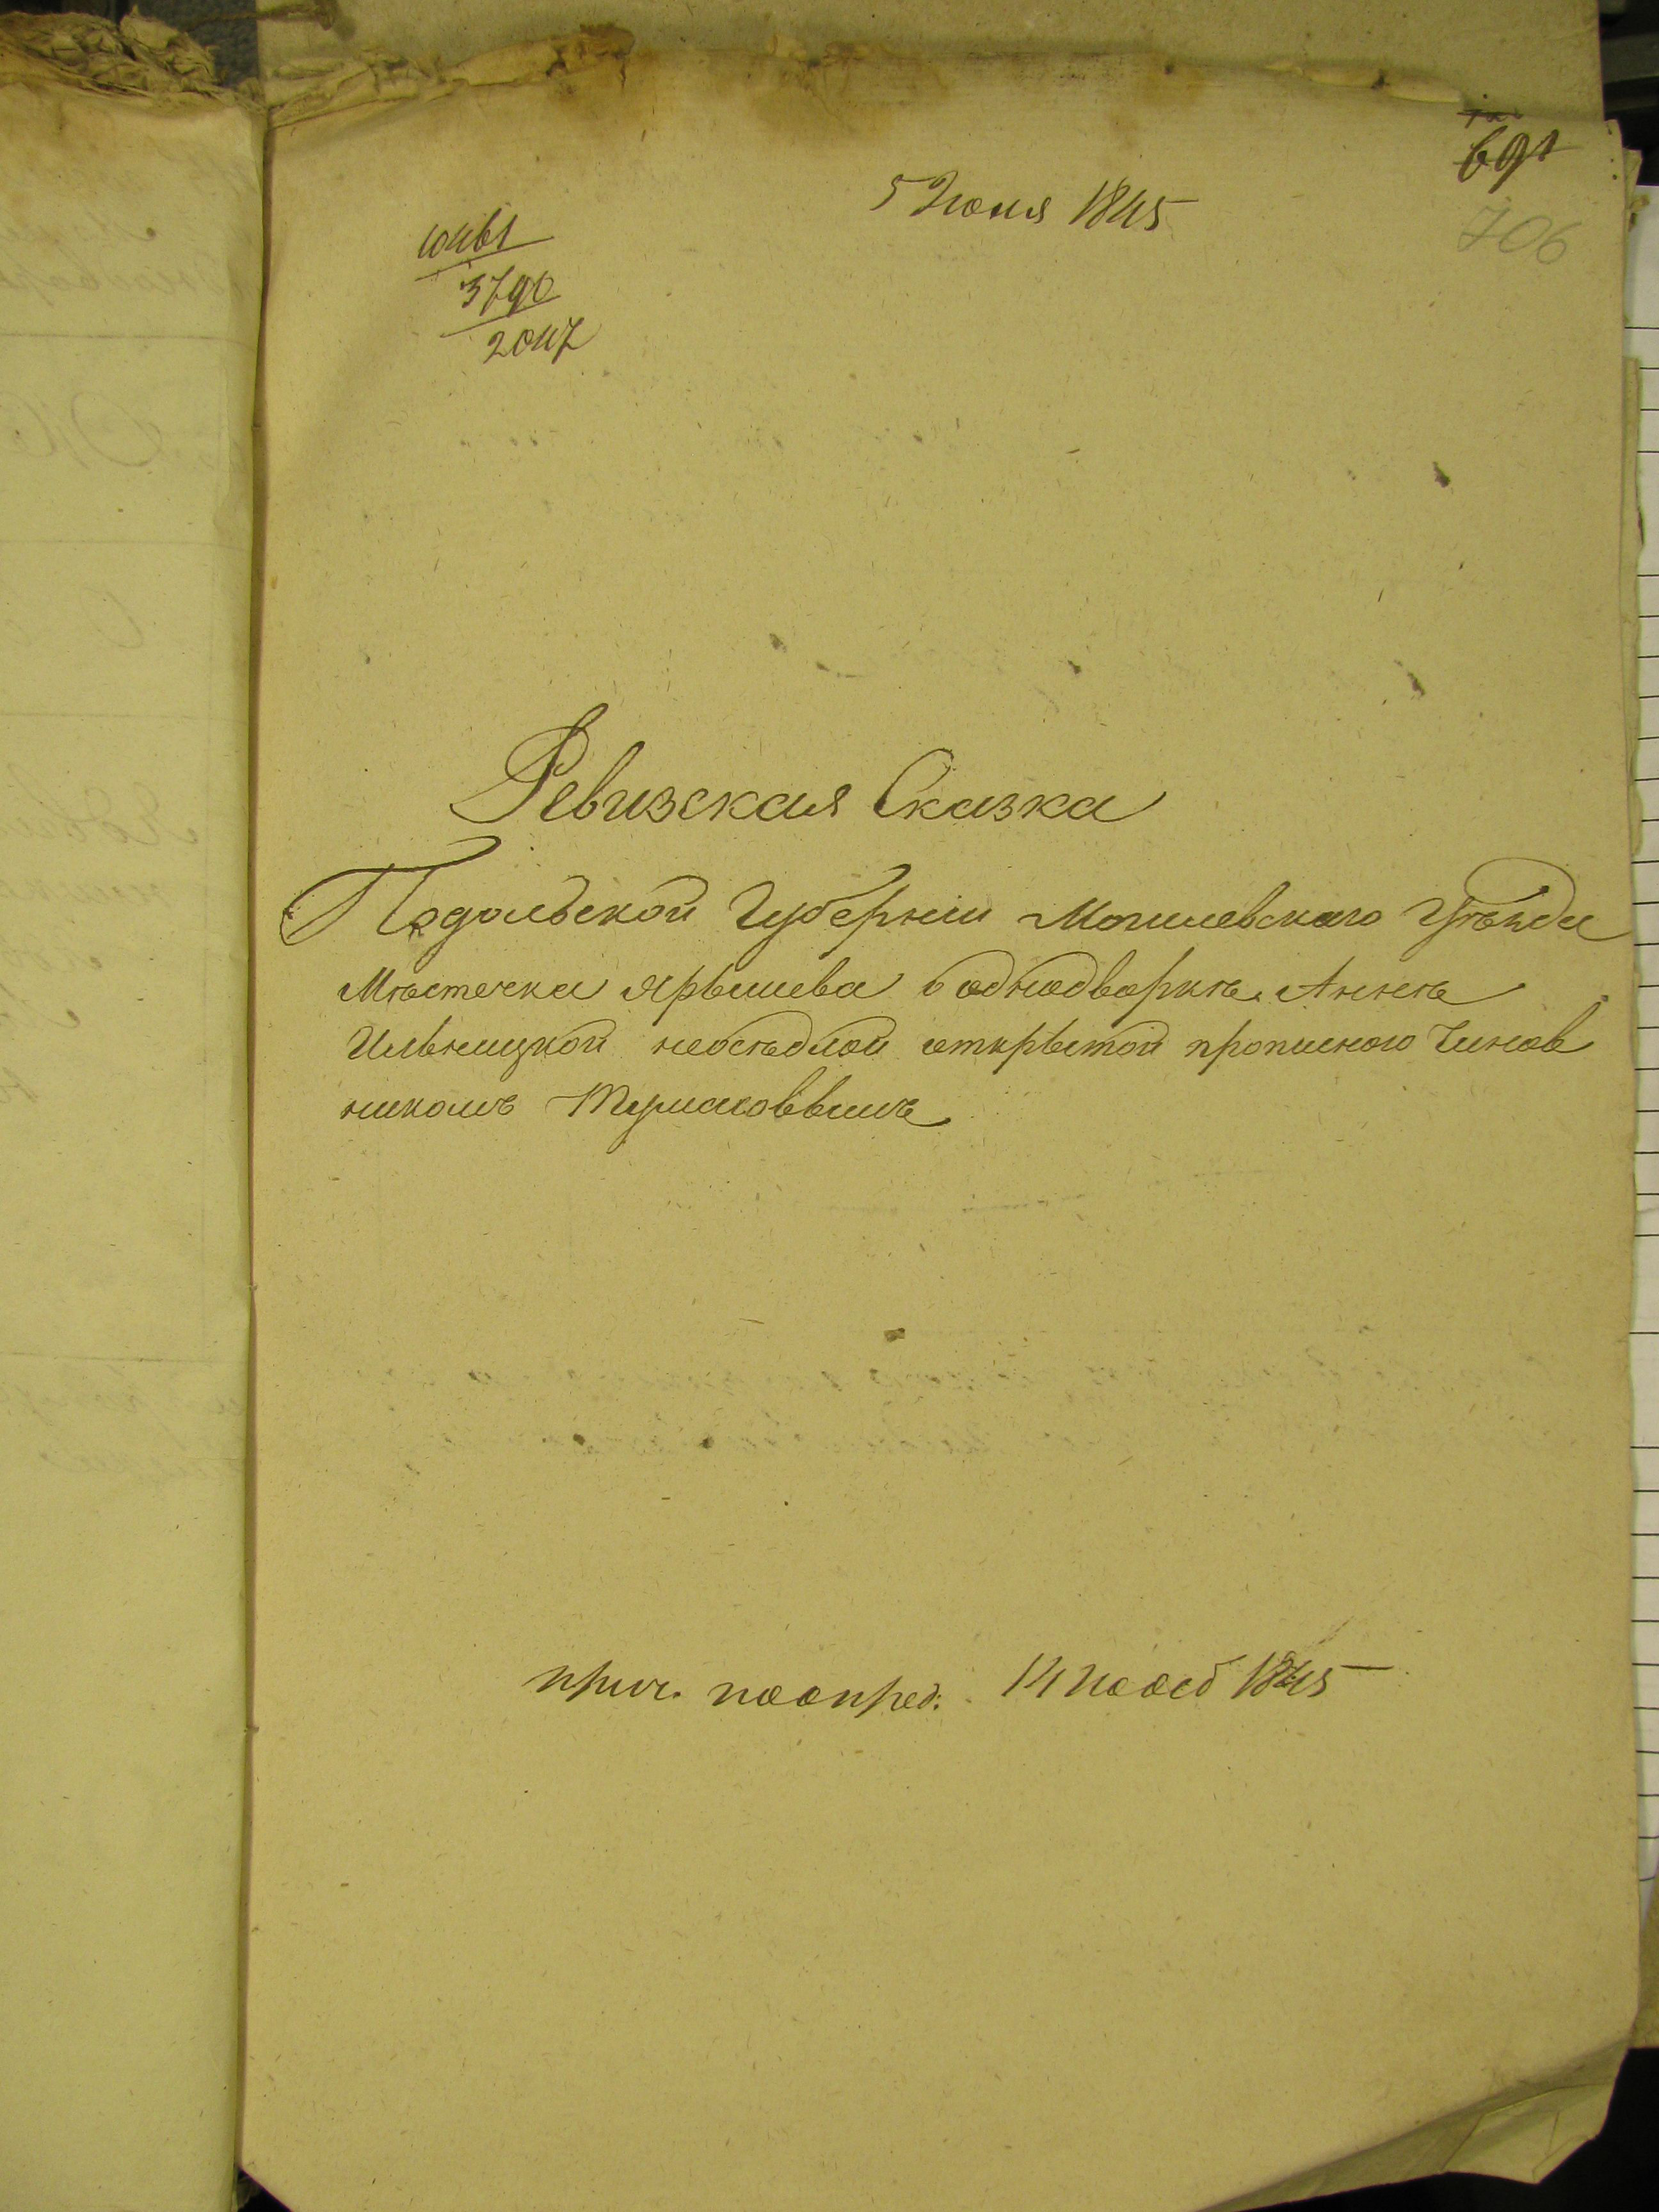 691
706
5 Июня 1845
10461
3790
2047
Ревизская Сказка
Подольской Губерніи Могилевскаго Уѣзда
Мѣстечка Ярышева о однодворкѣ Аннѣ
Ильницкой неосѣдлой открытой прописного Чинов
никомъ
прич. по опред: 14 1845